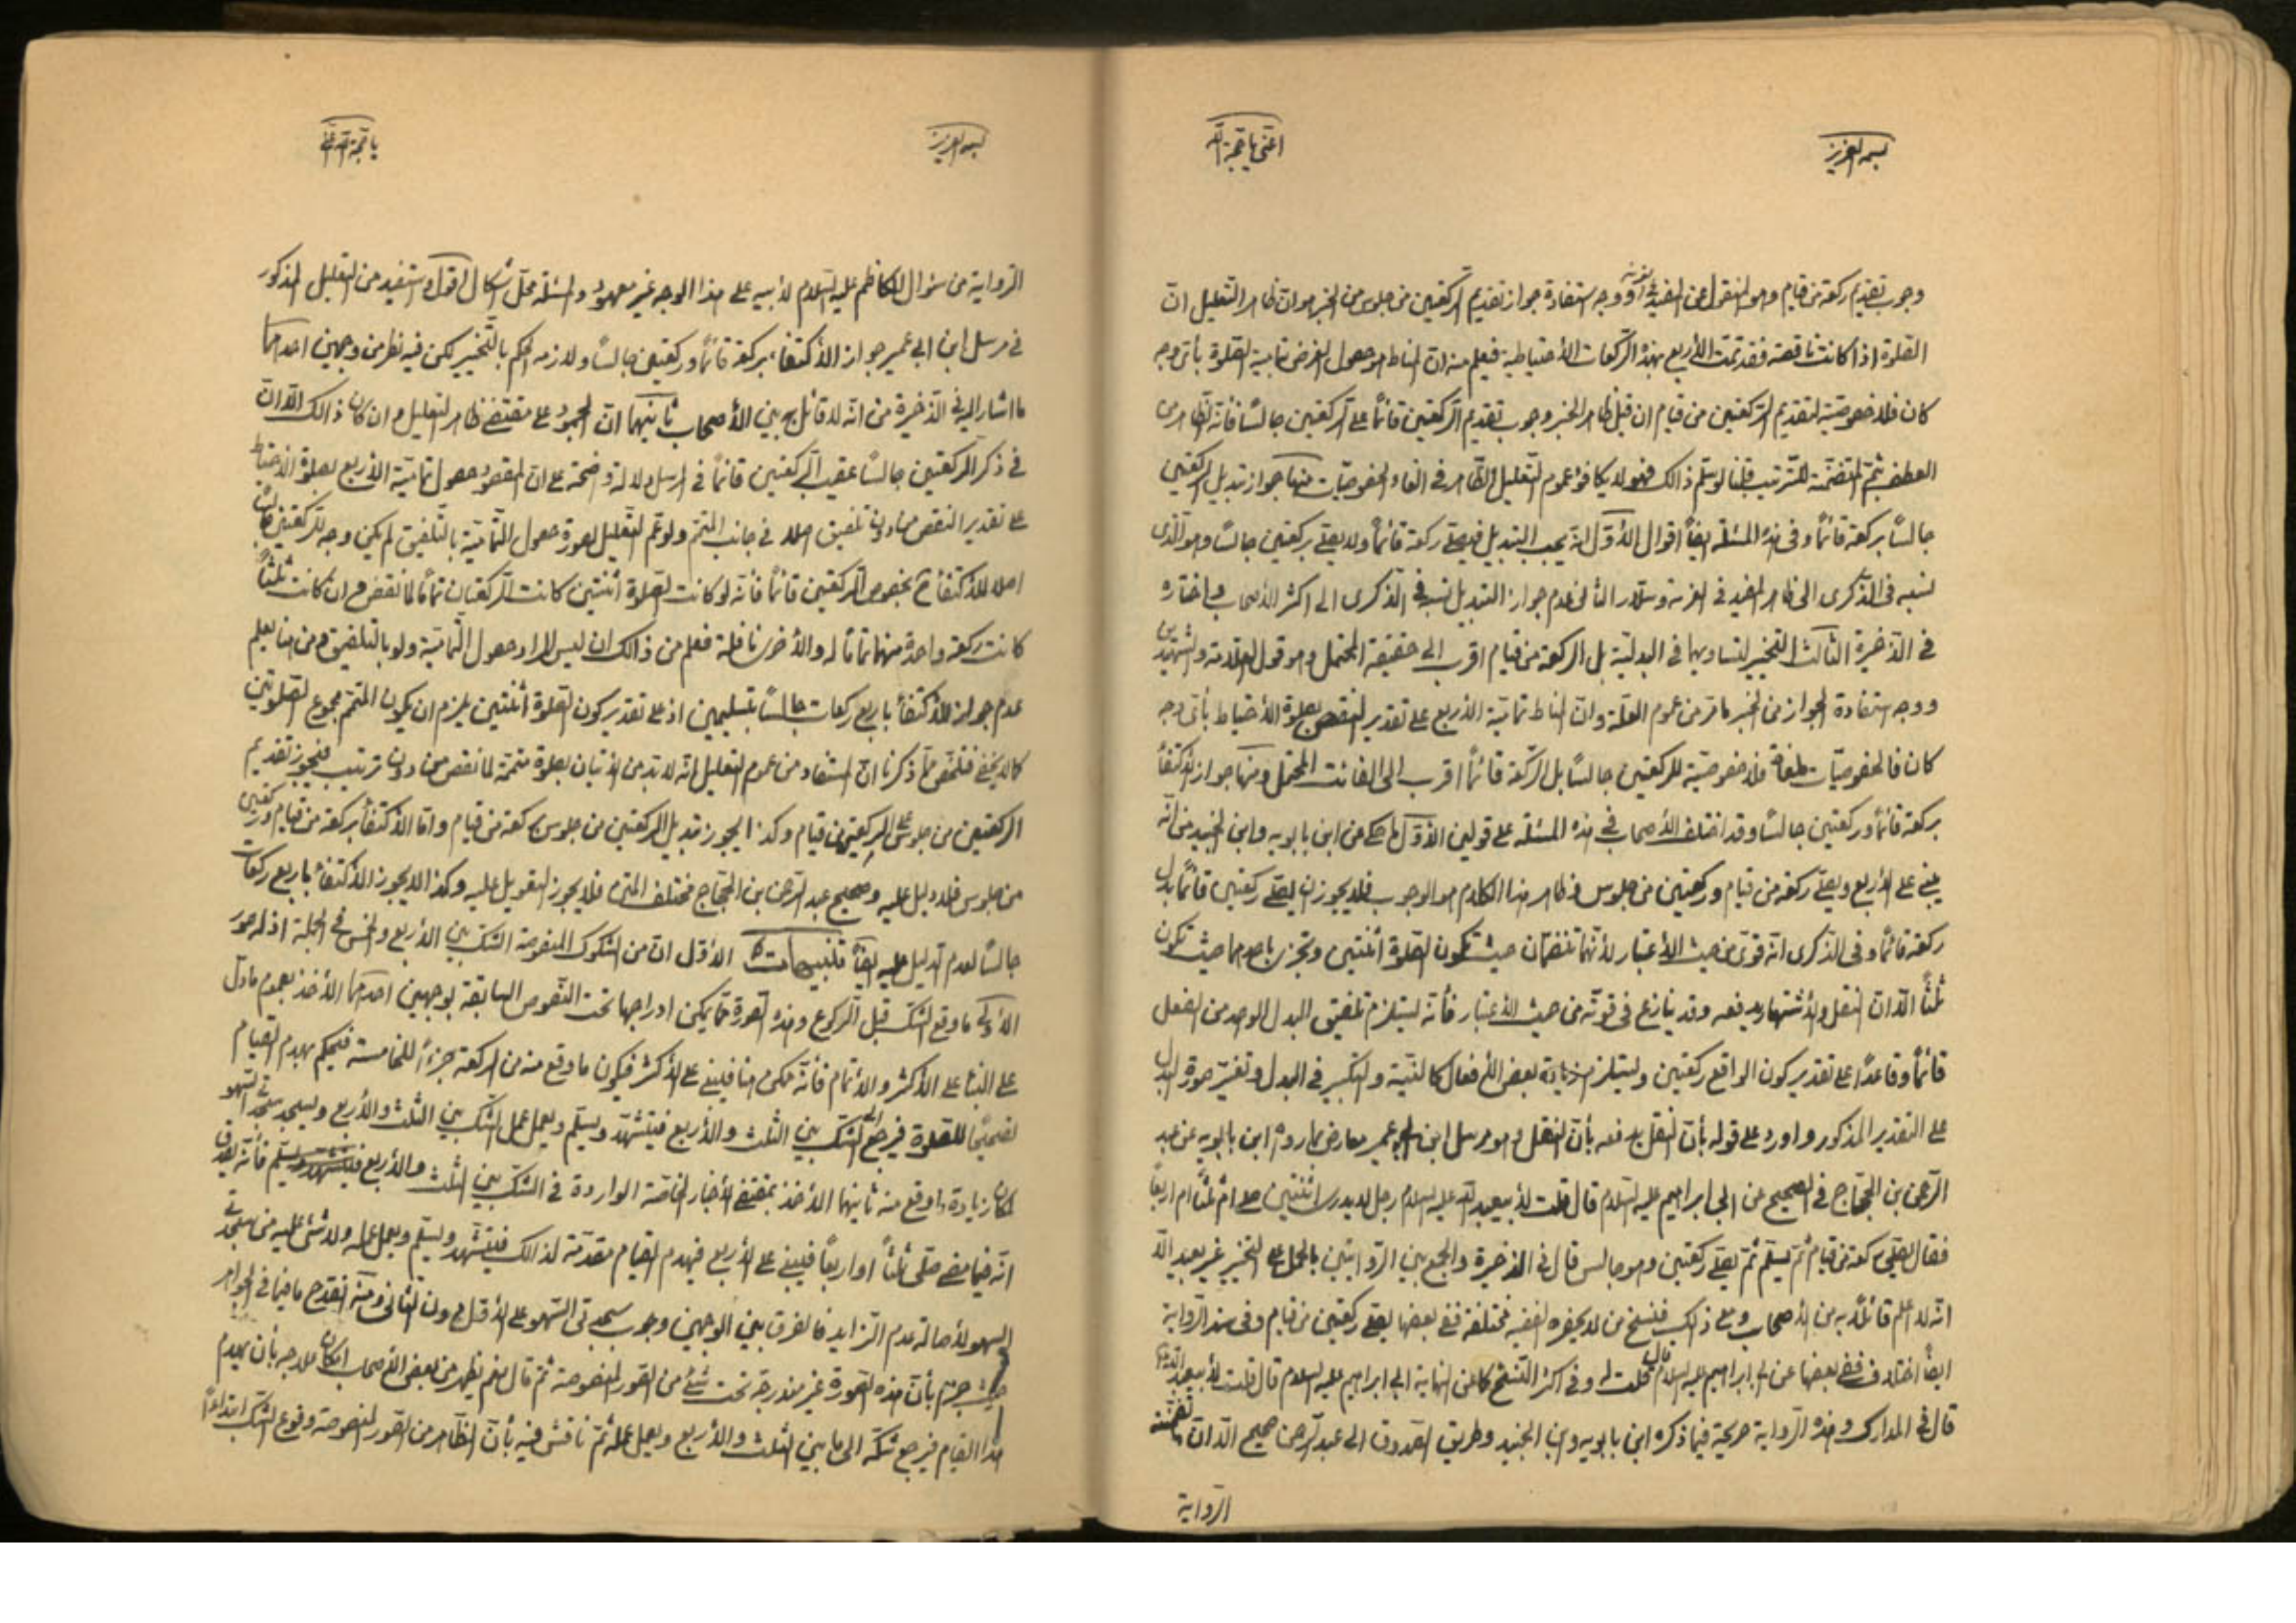 بسمه العزيز
اغثنى يا حجة الله
وجوب تقديم ركعة من قيام وهو المنقول عن المفيد ووجه استفادة جواز تقديم الركعتين من جلوس من الخبر هو ان ظاهر التعليل ان
الصلوة اذا كانت ناقصة فقد تمت الأربع بهذه الركعات الأحتياطية فيعلم منه ان المناط هو حصول الغرض تمامية الصلوة بأىّ وجه
كان فلا خصوصيّة لتقديم الركعتين من قيام ان قيل ظاهر الخبر وجوب تقديم الركعتين قائمًا على الركعتين جالسًا فأنّه الظاهر من
العطف بثمّ المتضمّنة للترتيب قلنا لو سلّم ذالك فهو لا يكافؤ عموم التعليل الظاهر فى الغاء الخصوصيّات منها جواز تبديل الركعتين
جالسًا بركعة قائمًا وفى هذه المسئلة ايضًا اقوال الأوّل انه يجب التبديل فيصلّى ركعة قائمًا ولا يصلّى ركعتين جالسًا وهو الّذى
نسبه فى الذّكرى الى ظاهر المفيد فى الغرية وسلّار الثانى عدم جواز التبديل نسبه فى الذّكرى الى اكثر الأصحاب واختاره
فى الذّخيرة الثالث التخيير لتساويهما فى البدليّة بل الركعة من قيام اقرب الى حقيقة المحتمل وهو قول العلّامة والشهيدين
ووجه استفادة الجواز من الخبر ما مرّ من عموم العلّة وانّ المناط تماميّة الأربع على تقدير النقص بصلوة الأحتياط بأىّ وجه
كان فالخصوصيّات ملغاة فلا خصوصيّة للركعتين جالسًا بل الركعة قائمًا اقرب الى الفائت المحتمل ومنها جواز الأكتفأ
بركعة قائمًا وركعتين جالسًا وقد اختلف الأصحاب فى هذه المسئلة على قولين الأوّل ما حكى عن ابن بابويه وابن الجنيد من انّه
يبنى على الأربع ويصلّى ركعة من قيام وركعتين من جلوس وظاهر هذا الكلام هو الوجوب فلا يجوز ان يصلّى ركعتين قائمًا بدل
ركعة قائمًا وفى الذكرى انّه قوىّ من حيث الأعتبار لأنّهما تنضمّان حيث تكون الصلوة أثنتين وتجزى باحدهما حيث تكون
ثلثًا الّا انّ النقل والأشتهار يدفعه وقد ينازع فى قوّته من حيث الأعتبار فأنّه يستلزم تلفيق البدل الواحد من الفعل
قائمًا وقاعدًا على تقدير كون الواقع ركعتين ويستلزم زيادة بعض الأفعال كالنيّة والتكبير فى البدل وتغيّر صورة البدل
على التقدير المذكور واورد على قوله بأنّ النقل يدفعه بأنّ النقل وهو مرسل ابن ابى عمير معارض بما رواه ابن بابويه عن عبد
الرحمن بن الحجاج فى الصحيح عن ابى ابراهيم عليه السّلام قال قلت لأبيعبد اللّه عليه السلام رجل لا يدرى اثنتين صلّى ام ثلثًا ام اربعًا
فقال يصلّى ركعة من قيام ثمّ يسلّم ثمّ يصلّى ركعتين وهو جالس قال فى الذخيرة والجمع بين الرّوايتين بالحمل على التخيير غير بعيد الّا
انّه لا اعلم قائلًا به من الأصحاب ومع ذالك فنسخ من لا يحضره الفقيه مختلفة ففى بعضها يصلّى ركعتين من قيام وفى سند الرّواية
ايضًا اختلاف ففى بعضها عن ابى ابراهيم عليه السلام قال قلت له وفى اكثر النّسخ كما عن النهاية ابى ابراهيم عليه السلام قال قلت لأبيعبد اللّه
قال فى المدارك وهذه الرّواية صريحة فيما ذكره ابن بابويه وابن الجنيد وطريق الصّدوق الى عبد الرحمن صحيح الّا انّ
الرّواية
بسمه العزيز
يا حجة اللّه
الرّواية من سؤال الكاظم عليه السّلام لأبيه على هذا الوجه غير معهود والمسئلة محلّ اشكال اقول واستفيد من التعليل المذكور
فى مرسل ابن ابى عمير جواز الأكتفأ بركعة قائمًا وركعتين جالسًا ولازمه الحكم بالتّخيير لكن فيه نظر من وجهين احدهما
ما اشار اليه فى الذّخيرة من انّه لا قائل به بين الأصحاب ثانيهما انّ الجمود على مقتضى ظاهر التعليل وان كان ذالك الّا انّ
فى ذكر الركعتين جالسًا عقيب الركعتين قائمًا فى المرسل دلالة واضحة على انّ المقصود حصول تماميّة الأربع بصلوة الأحتياط
على تقدير النقص من دون تلفيق اصلا فى جانب المتمّم ولو عمّ التعليل لصورة حصول التّماميّة بالتّلفيق لم يكن وجه للركعتين جالسًا
اصلا للأكتفأ ح بخصوص الركعتين قائمًا فأنّه لو كانت الصلوة أثنتين كانت الركعتان تمامًا لما نقص وان كانت ثلثًا
كانت ركعة واحدة منهما تمامًا له والأخرى نافلة فعلم من ذالك ان ليس المراد حصول التّماميّة ولو بالتلفيق ومن هنا يعلم
عدم جواز الأكتفأ باربع ركعات جالسًا بتسليمين اذ على تقدير كون الصّلوة أثنتين يلزم ان يكون المتمّم مجموع الصّلوتين
كما لا يخفى فتلخّص ممّا ذكرنا انّ المستفاد من عموم التعليل انّه لا بدّ من الأتيان بصلوة متمّمة لما نقص من دون ترتيب فيجوز تقديم
الركعتين من جلوس على الركعتين من قيام وكذا يجوز تبديل الركعتين من جلوس بركعة من قيام وامّا الأكتفأ بركعة من قيام وركعتين
من جلوس فلا دليل عليه وصحيح عبد الرّحمن بن الحجّاج مختلف المتن فلا يجوز التعويل عليه وكذا لا يجوز الأكتفأ باربع ركعات
جالسًا لعدم الدليل عليه ايضًا تنبيهات الأوّل انّ من الشكوك المنصوصة الشكّ بين الأربع والخمس فى الجملة اذ له صور
الأولى ما وقع الشكّ قبل الركوع وهذه الصّورة ممّا يمكن ادراجها تحت النّصوص السابقة بوجهين احدهما الأخذ بعموم ما دلّ
على البنأ على الأكثر والأتمام فأنّه ممكن هنا فليبنى على الأكثر فيكون ما وقع منه من الركعة جزءًا للخامسة فيحكم بهدم القيام
تصحيحًا للصّلوة فيرجع الى الشكّ بين الثلث والأربع فيتشهّد ويسلّم ويعمل عمل الشكّ بين الثلث والأربع ويسجد سجدتى السّهو
لمكان زيادة ما وقع منه ثانيهما الأخذ بمقتضى الأخبار الخاصّة الواردة فى الشكّ بين الثلث والأربع فأنّه يصدق
انّه فيما مضى صلّى ثلثًا او اربعًا فليبنى على الأربع فيهدم القيام مقدّمة لذالك فليتشهّد ويسلّم ويعمل عمله ولا شئ عليه من سجدتى
السهو لأصالة عدم الزّايد فالفرق بين الوجهين وجوب سجدتى السّهو على الأوّل دون الثانى ومنه انقدح ما فى الجواهر
حيث جزم بأنّ هذه الصّورة غير مندرجة تحت شئ من الصّور المنصوصة ثمّ قال نعم يظهر من بعض الأصحاب امكان علاجه بأن يهدم
هذا القيام فيرجع شكّه الى ما بين الثلث والأربع ويعمل عمله ثمّ ناقش فيه بأنّ الظّاهر من الصّور المنصوصة وقوع الشكّ ابتداءًا